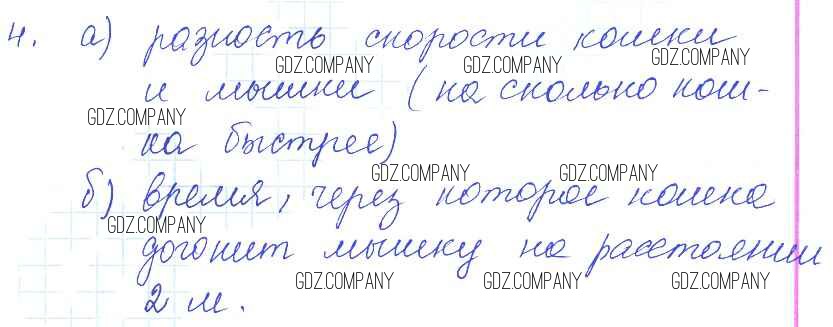 4. а) разность скорости кошки
GDZ.COMPANY GDZ.COMPANY GDZ.COMPANY
и мышки (на сколько кош-
GDZ.COMPANY
ка быстрее)
GDZ.COMPANY GDZ.COMPANY
б) время, через которое кошка
GDZ.COMPANY
догонит мышку на расстоянии
GDZ.COMPANY GDZ.COMPANY GDZ.COMPANY
2 м.